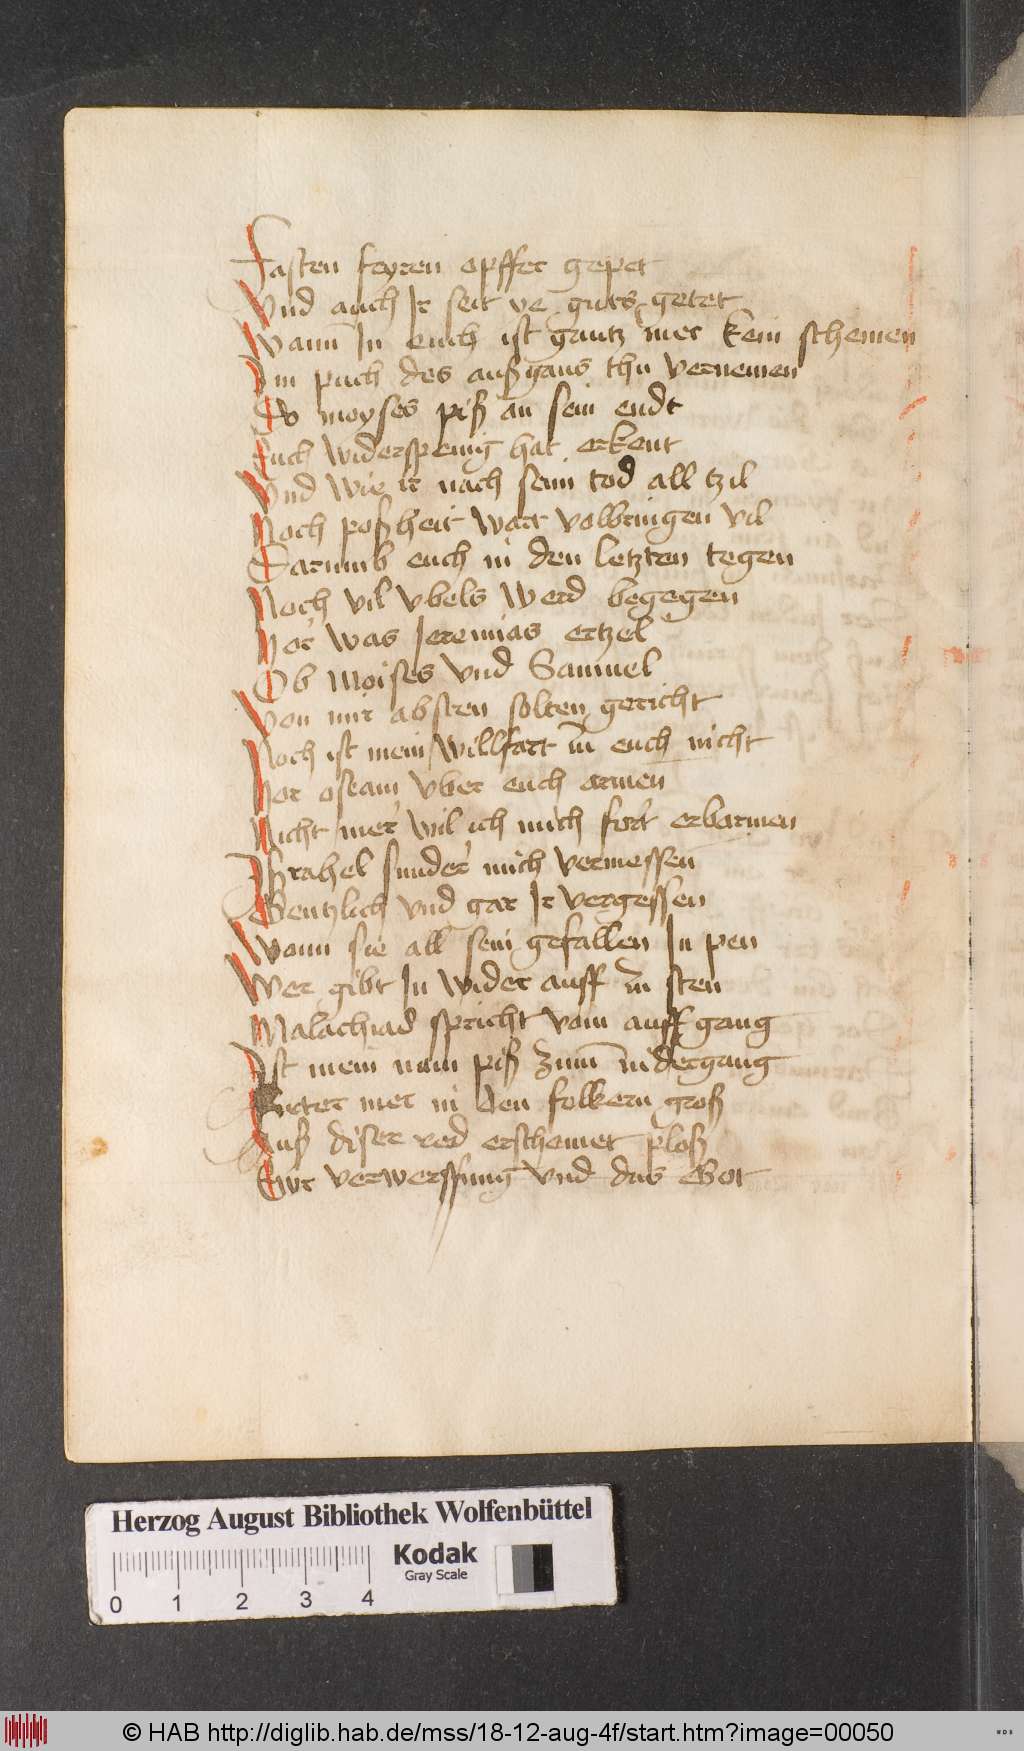 Fasten feyren opffer gepet
Vnd auch Ir seit ye guts getet
Wann In euch ist gantz mer kein schemen
Im puch des außgans thu vernemen
Do moyses piß an sein endt
Euch widerspenig hat erkent
Vnd wie ir nach seim tod all tzil
Noch poßheit wart volbringen vil
Darumb euch in den letzten tegen
Noch vil vbels werd begegen
Hor was Jeremias ertzel
Ob Moises vnd Samuel
Von mir absten solten gericht
Noch ist mein willfart in euch nicht
Hor oseam vber euch armen
Nicht mer wil ich mich fort erbarmen
Ißrahel sunder mich vermessen
Gentzlich vnd gar Ir vergessen
Wann sie all sein gefallen In pen
Wer gibt In wider auff in sten
Malachiad spricht vom auffgang
Ist mein nam piß zum nidergang
mer in den folkern groß
Auß diser red erscheinet ploß
Ewr verwerffung vnd das Got
Herzog August Bibliothek Wolfenbüttel
Kodak
Gray Scale
0 1 2 3 4
© HAB http://diglib.hab.de/mss/18-12-aug-4f/start.htm?image=00050